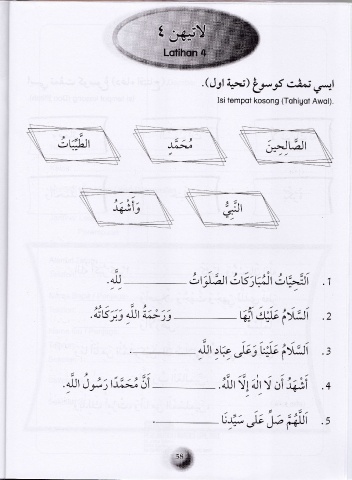 لاتيهن ٤
Latihan 4
ايسي تمڤت كوسوڠ (تحية اول).
Isi tempat kosong (Tahiyat Awal).
الصَّالِحِينَ مُحَمَّدٍ الطَّيِّبَاتُ
النَّبِيُّ وَأَشْهَدُ
1. اَلتَّحِيَّاتُ الْمُبَارَكَاتُ الصَّلَوَاتُ ________ لِلَّهِ.
2. اَلسَّلَامُ عَلَيْكَ أَيُّهَا ________ وَرَحْمَةُ اللهِ وَبَرَكَاتُهُ.
3. اَلسَّلَامُ عَلَيْنَا وَعَلَى عِبَادِ اللهِ ________.
4. أَشْهَدُ أَن لَا اِلٰهَ إِلَّا اللهُ. ________ أَنَّ مُحَمَّدًا رَسُولُ اللهِ.
5. اَللَّهُمَّ صَلِّ عَلَى سَيِّدِنَا ________.
58